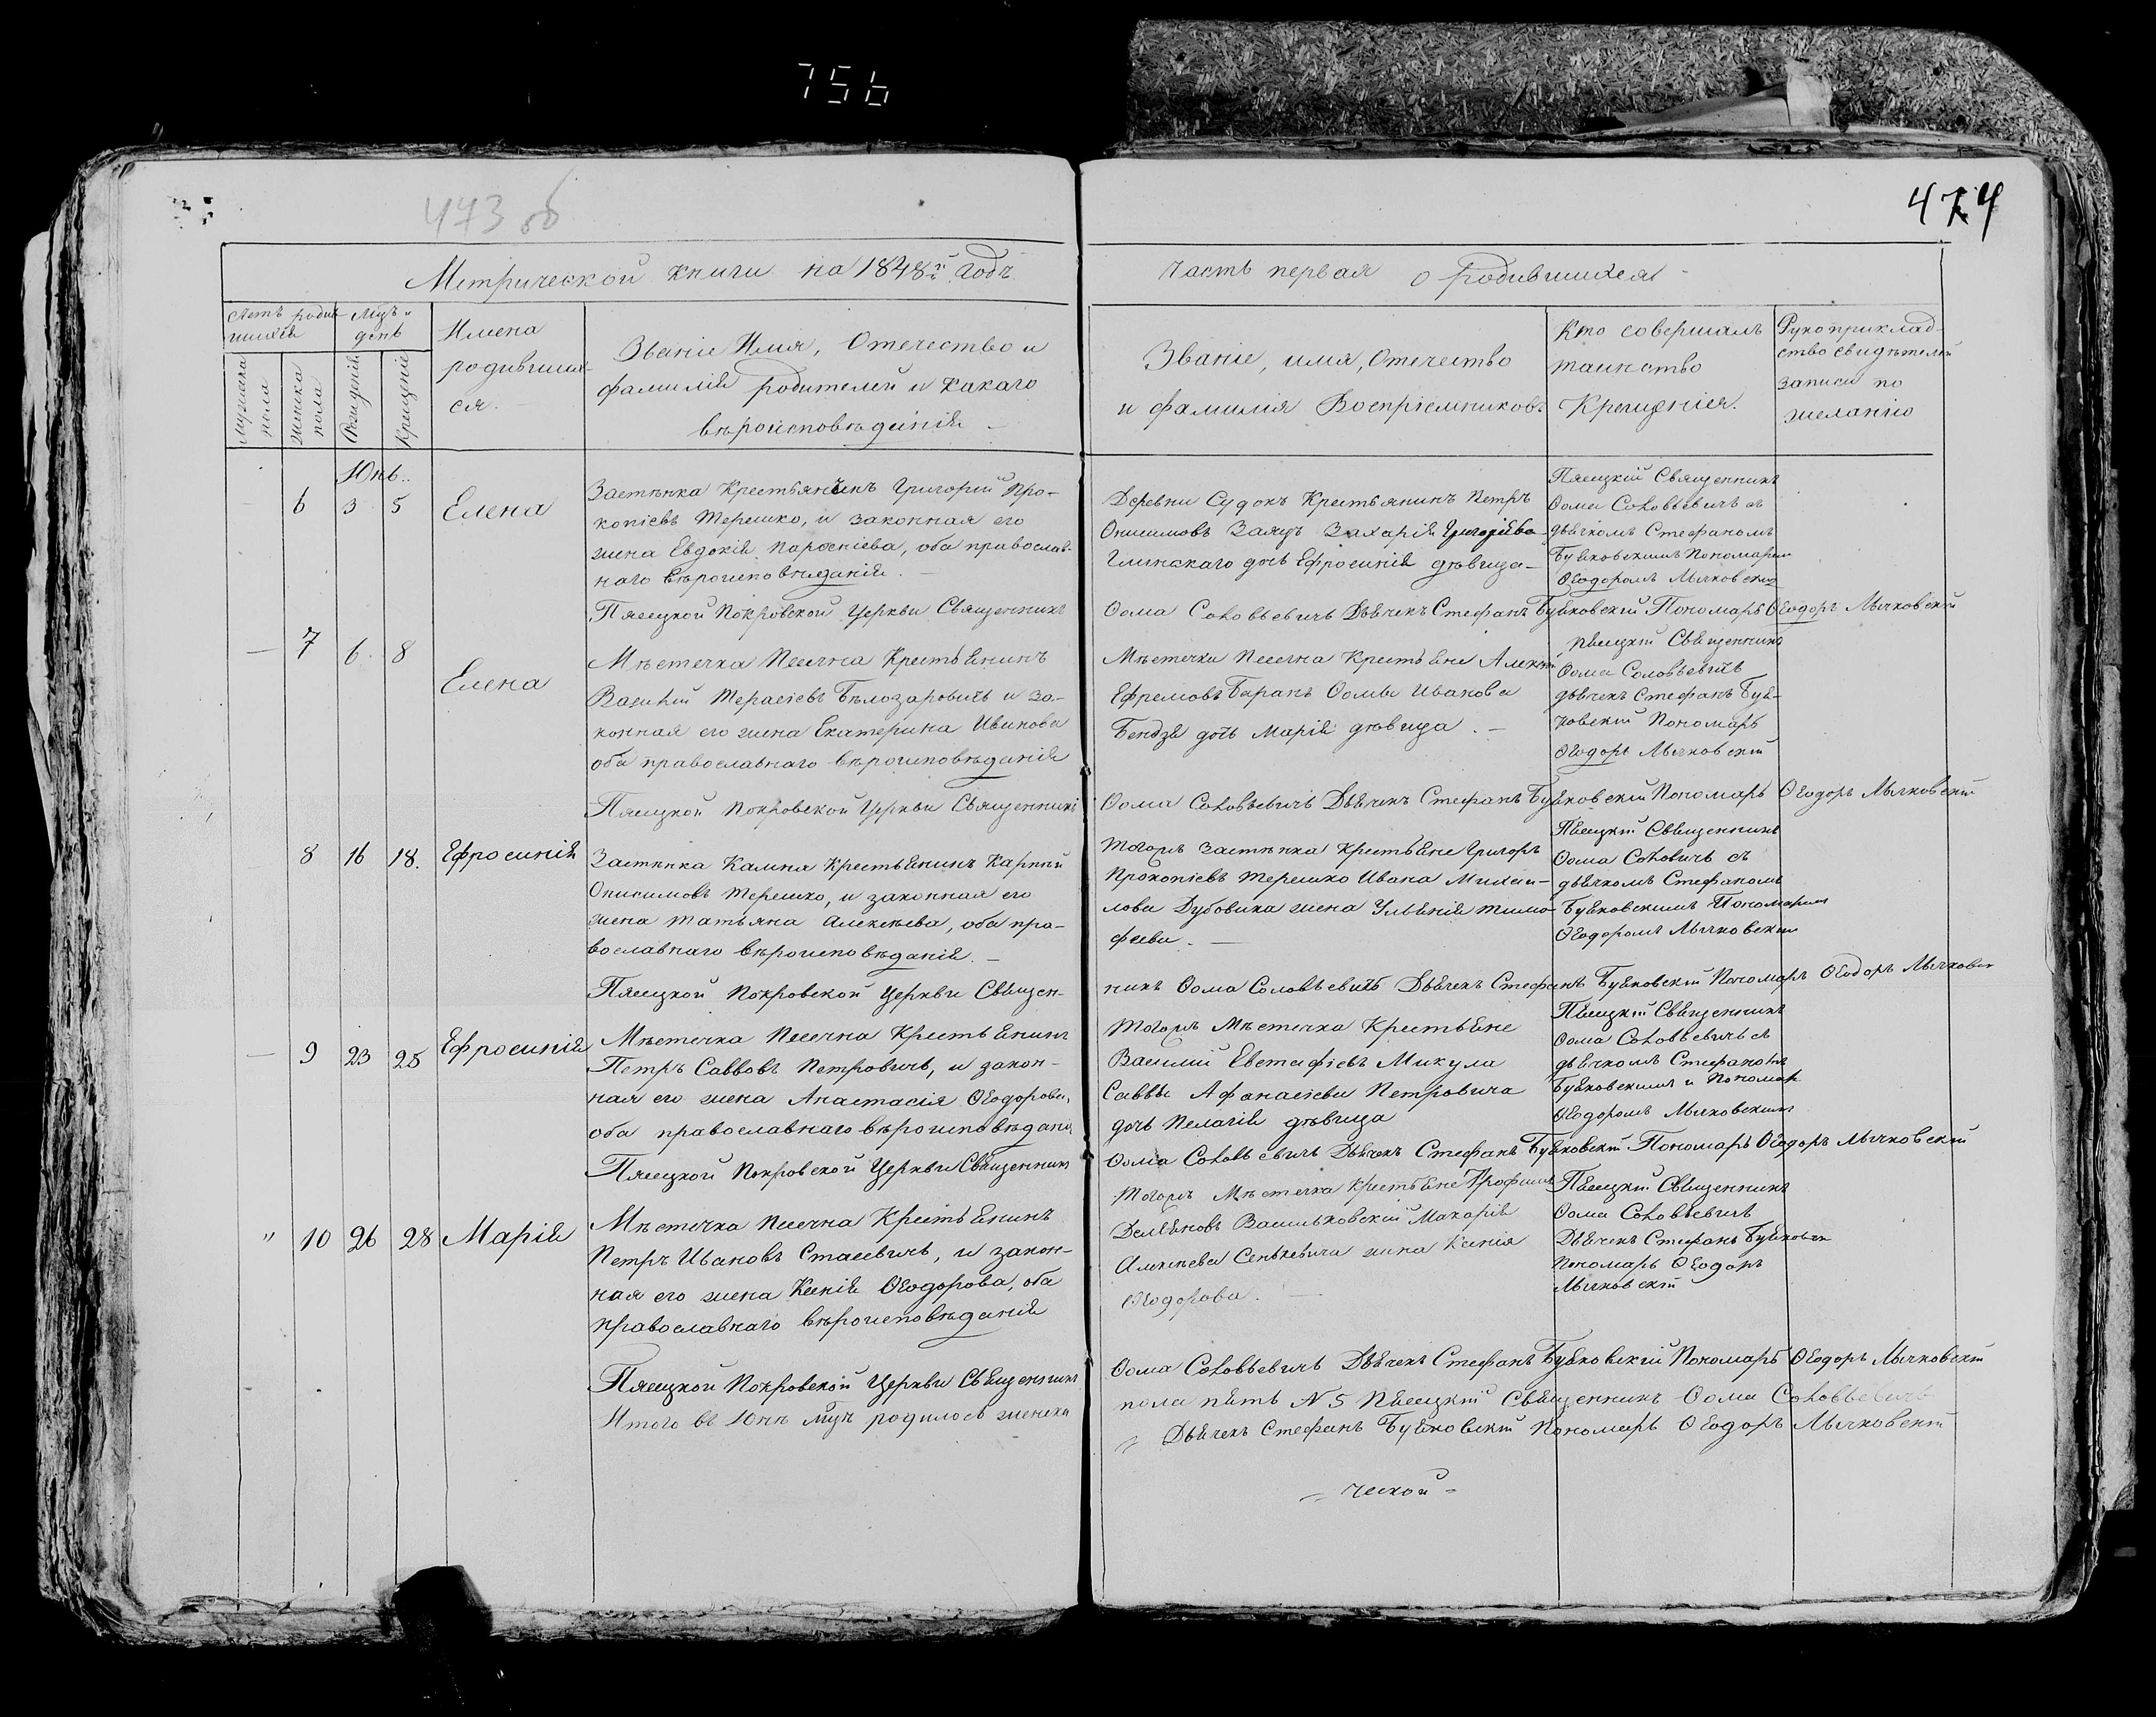 756
473 об
474
Метрической книги на 1848й годъ
часть первая о родившихся
Мцъ и день
Имена родившихся.
Званіе Имя, Отечество и
фамилія родителей и какаго
вѣроисповѣданія
Званіе, имя, Отечество
и фамилія Воспріемниковъ
Кто совершалъ
таинство
Крещенія.
Рукоприклад-
ство свидѣтелей
записи по
желанію
мужска пола
женска пола
Рожденія
Крещенія
Юнь
6 3 5 Елена
Застѣнка Крестьянинъ Григорій Про-
копіевъ Терешко, и законная его
жена Евдокія, оба православ-
наго вѣроисповѣданія.
Деревни Судокъ Крестьянинъ Петръ
Онисимовъ Заяцъ Захарія Григорьева
дочь Ефросинія дѣвица
Пясецкій Священникъ
Ѳома Соловьевичъ съ
дьячкомъ Стефаномъ
Пономарем
Ѳеодоромъ Мычковскимъ
Пясецкой Покровской Церкви Священникъ Ѳома Соловьевичъ Дьячекъ Стефанъ Пономарь Ѳеодоръ Мычковскій
7 6 8 Елена
Мѣстечка Песечна Крестьянинъ
Василій Тарасіевъ Бѣлозаровичъ и за-
конная его жена Екатерина Иванова
оба православнаго вѣроисповѣданія
Мѣстечка Песечна Крестьяне
Ефремовъ Баранъ Ѳомы Иванова
дочь Марія дѣвица.
Пясецкій Священникъ
Ѳома Соловьевичъ
дьячекъ Стефанъ
Пономарь
Ѳеодоръ Мычковскій
Пясецкой Покровской Церкви Священникъ Ѳома Соловьевичъ Дьячекъ Стефанъ Пономарь Ѳеодоръ Мычковскій
8 16 18. Ефросинія
Застѣнка Калина Крестьянинъ
Онисимовъ Терешко, и законная его
жена Татьяна Алексѣева, оба пра-
вославнаго вѣроисповѣданія.
Тогожъ Застѣнка Крестьяне Григоръ
Прокопіевъ Терешко Ивана Михаи-
лова Дубовика жена Ульянія Тимо-
феева.
Пясецкій Священникъ
Ѳома съ
дьячкомъ Стефаномъ
Пономарем
Ѳеодоромъ Мычковским
Пясецкой Покровской Церкви Священ-
никъ Ѳома Соловьевичъ Дьячекъ Стефанъ Пономарь Ѳеодоръ
9 23 25 Ефросинія
Мѣстечка Песечна Крестьянинъ
Петръ Саввовъ Петровичъ, и закон-
ная его жена Анастасія Ѳеодорова,
оба православнаго вѣроисповѣданія
Тогожъ Мѣстечка Крестьяне
Василій Евстафіевъ Микула
Саввы Афанасіева Петровича
дочь Пелагія дѣвица
Пясецкій Священникъ
Ѳома Соловьевичъ съ
дьячкомъ Стефаномъ
и Пономар
Ѳеодоромъ Мычковскимъ
Пясецкой Покровской Церкви Священникъ Ѳома Соловьевичъ Дьячекъ Стефанъ Пономарь Ѳеодоръ Мычковскій
" 10 26 28 Марія
Мѣстечка Песечна Крестьянинъ
Петръ Ивановъ Стасевичъ, и закон-
ная его жена Ксенія Ѳеодорова, оба
православнаго вѣроисповѣданія
Тогожъ Мѣстечка Крестьяне Трофимъ
Васильковскій Макарія
Алексѣева Сенькевича жена Ксенія
Ѳеодорова.
Пясецкій Священникъ
Ѳома Соловьевичъ
Дьячекъ Стефанъ
Пономарь Ѳеодоръ
Мычковскій
Пясецкой Покровской Церкви Священникъ Ѳома Соловьевичъ Дьячекъ Стефанъ Пономарь Ѳеодоръ Мычковскій
Итого въ Юнѣ мцѣ родилось женска пола пять № 5 Пясецкій Священникъ Ѳома Соловьевичъ
Дьячекъ Стефанъ Пономарь Ѳеодоръ Мычковскій
ческой